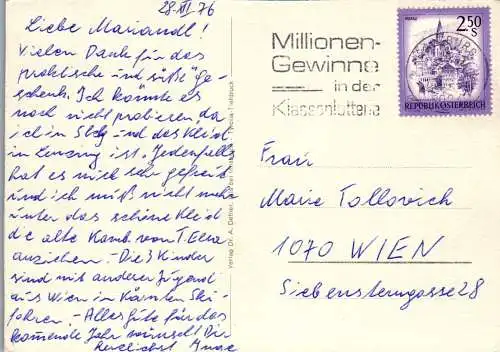 28.XII.76
Liebe Mariandl!
Vielen Dank für das
praktische und süße Ge-
schenk. Ich konnte es
noch nicht probieren, da
ich in Sbg und das Kleid
in Lenzing ist. Jedenfalls
hat es mich sehr gefreut
und ich muß nicht mehr
unter das schöne Kleid
die alte Komb. von T. Elsa
anziehen. - Die 3 Kinder
sind mit anderer Jugend
aus Wien in Kärnten Ski-
fahren. - Alles Gute für das
kommende Jahr wünscht Dir
herzlichst Inge
Verlag Dr. A. Defner
Tiefdruck
Millionen-
Gewinne
in der
Klassenlotterie
MURAU
2.50
S
REPUBLIK ÖSTERREICH
Frau
Marie Tollovich
1070 WIEN
Siebensterngasse 28